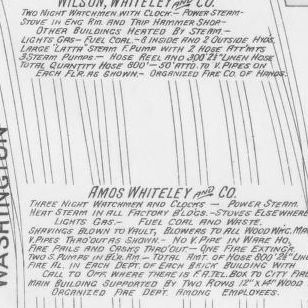 WILSON, WHITELEY AND CO.
TWO NIGHT WATCHMEN WITH CLOCK - POWER STEAM-
STOVE IN ENG. RM. AND TRIP HAMMER SHOP-
OTHER BUILDINGS HEATED BY STEAM.-
LIGHTS GAS- FUEL COAL.- 8 INSIDE AND 2 OUTSIDE HYDS.
LARGE "LATTA" STEAM F. PUMP WITH 2 HOSE ATT'MTS
3 STEAM PUMPS.- HOSE REEL AND 300' 2½" LINEN HOSE
TOTAL QUANTITY HOSE 600'-50' ATT'D. TO V. PIPES ON
EACH FLR. AS SHOWN.- ORGANIZED FIRE CO. OF HANDS.
WASHINGTON
AMOS WHITELEY AND CO.
THREE NIGHT WATCHMEN AND CLOCKS - POWER STEAM
HEAT STEAM IN ALL FACTORY BLDGS.-STOVES ELSEWHERE
LIGHTS GAS.- FUEL COAL AND WASTE.
SHAVINGS BLOWN TO VAULT, BLOWERS TO ALL WOOD WKG. MA
V. PIPES THRO'OUT AS SHOWN.- NO V. PIPE IN WARE HO.
FIRE PAILS AND CASKS THRO'OUT- ONE FIRE EXTINGR.
TWO S. PUMPS IN BLR. RM.- TOTAL AMT. OF HOSE 800' 2½" LIN
FIRE AL. IN EACH DEPT. OF EACH BRICK BUILDING WITH
CALL TO OPR. WHERE THERE IS F.A. TEL. BOX TO CITY FI
MAIN BUILDING SUPPORTED BY TWO ROWS 12" X 14" WOOD
ORGANIZED FIRE DEPT. AMONG EMPLOYEES.